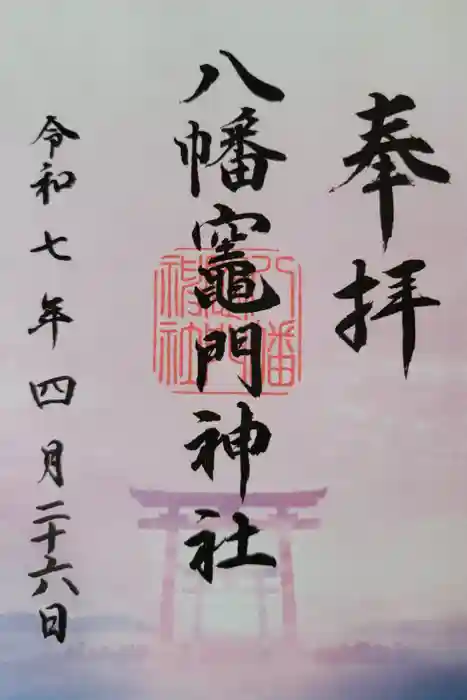 奉拝
八幡竈門神社
令和七年四月二十六日